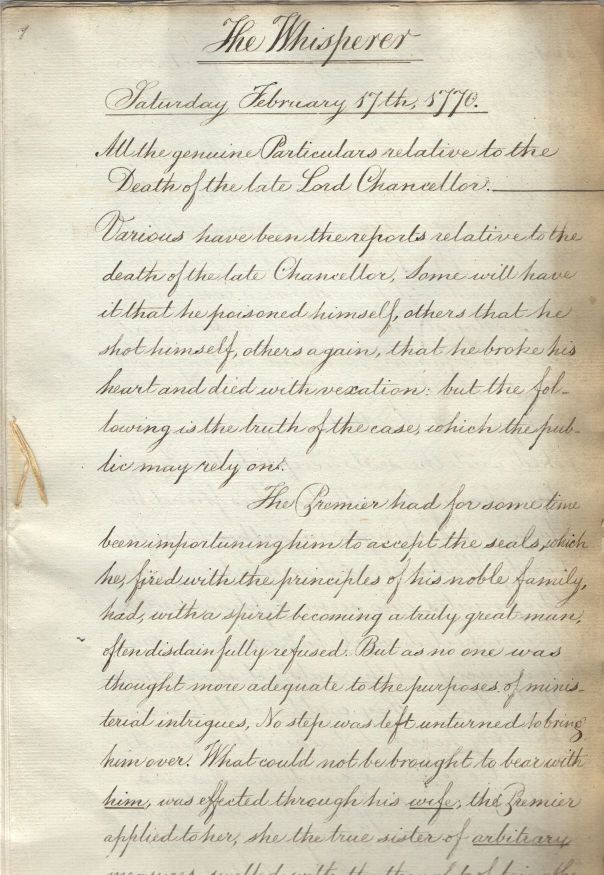 The Whisperer
Saturday February 17th, 1770.
All the genuine Particulars relative to the
Death of the late Lord Chancellor.
Various have been the reports relative to the
death of the late Chancellor, Some will have
it that he poisoned himself, others that he
shot himself, others again, that he broke his
heart and died with vexation: but the fol-
lowing is the truth of the case, which the pub-
lic may rely on.
The Premier had for some time
been importuning him to accept the seals, which
he, fired with the principles of his noble family,
had, with a spirit becoming a truly great man,
often disdainfully refused. But as no one was
thought more adequate to the purposes of minis-
terial intrigues, No step was left unturned to bring
him over. What could not be brought to bear with
him, was effected through his wife; the Premier
applied to her, she the true sister of arbitrary
measures, swelled with the